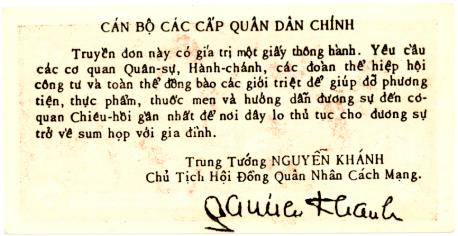 CÁN BỘ CÁC CẤP QUÂN DÂN CHÍNH
Truyền đơn này có giá trị một giấy thông hành. Yêu cầu
các cơ quan Quân-sự, Hành-chánh, các đoàn thể hiệp hội
công tư và toàn thể đồng bào các giới triệt để giúp đỡ phương
tiện, thực phẩm, thuốc men và hướng dẫn đương sự đến cơ-
quan Chiêu-hồi gần nhất để nơi đây lo thủ tục cho đương sự
trở về sum họp với gia đình.
Trung Tướng NGUYỄN KHÁNH
Chủ Tịch Hội Đồng Quân Nhân Cách Mạng.
Khanh